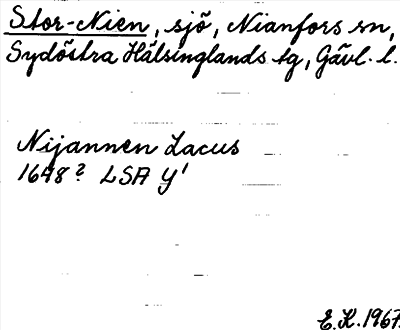 Stor-Nien, sjö, Nianfors sn,
Sydöstra Hälsinglands tg, Gävl. l.
Nijannen Lacus
1648? LSA Y1
E.K.1967.